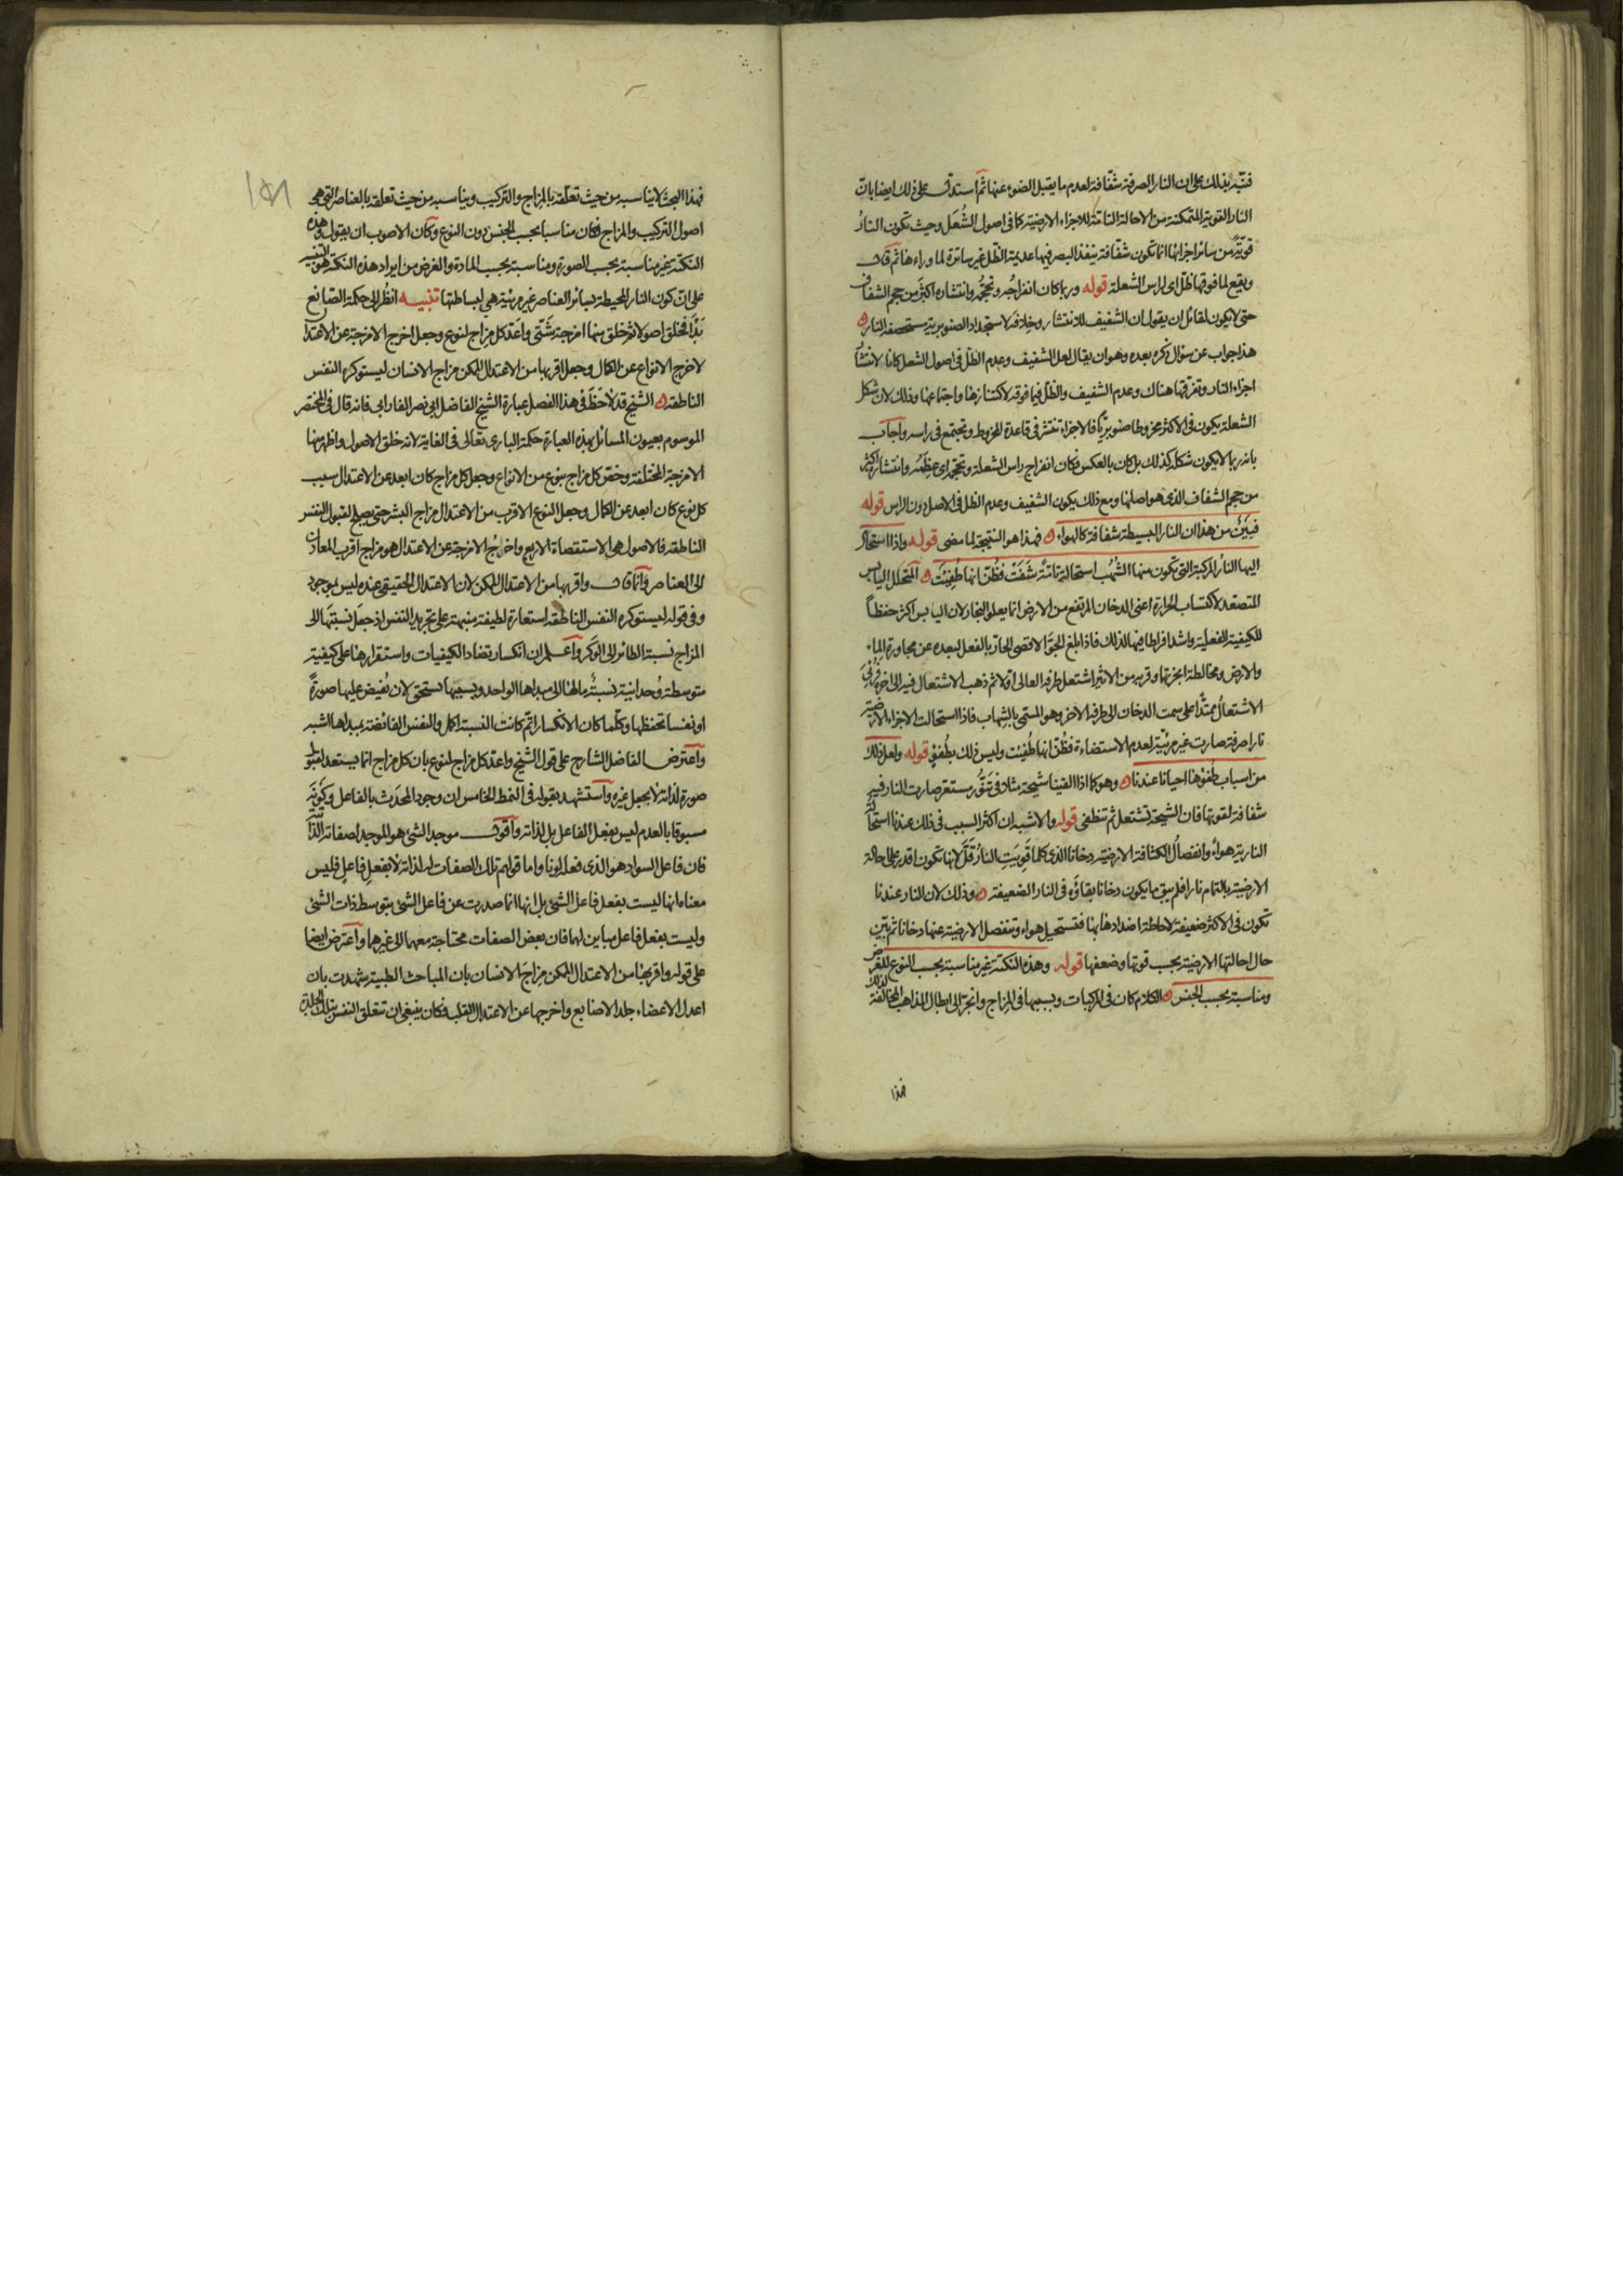 فنبه بذلك على ان النار الصرفة شفافة لعدم ما يقبل الضوء عنها ثم استدل على ذلك ايضا بان
النار القوية المتمكنة من الاحالة التامة للاجزاء الارضية كما فى اصول الشُعَل وحيث تكون النارُ
قويّة من سائر اجزائها انما تكون شفافة ينفذ البصر فيها عديمة الظل غير ساترة لما وراءها ثم قال
ويقع لما فوقها ظلّ اى لراس الشعلة قوله وربما كان انفراجُه وتحجُّمه وانتشاره اكثر من حجم الشفاف
حتى لا يكون لقائل ان يقول ان الشفيف للانتشار وخلافه لاستجداد الصنوبرية مستحصفة النار
هذا جواب عن سؤال ذكره بعده وهو ان يقال لعل الشفيف وعدم الظل فى اصول الشعل كانا لانتشار
اجزاء النار وتفرقها هناك وعدم الشفيف والظل فيما فوقه لاكتنازها واجتماعها وذلك لان شكل
الشعلة يكون فى الاكثر مخروطا صنوبريّا فالاجزاء تنتشر فى قاعدة المخروط وتجتمع فى راسه واجاب
بانه ربما لا يكون شكله كذلك بل كان بالعكس فكان انفراج راس الشعلة وتحجمه اى عظمُه وانتشاره اكثر
من حجم الشفاف الذى هو اصلها ومع ذلك يكون الشفيف وعدم الظل فى الاصل دون الراس قوله
فبيّن من هذا ان النار البسيطة شفافة كالهواء فهذا هو النتيجة لما مضى قوله واذا استحال
اليها النارُ المركبة التى تكون منها الشُهُب استحالة تامّة شفّت فظُنّ انها طُفِئت المتحلل اليابس
المتصعّد لاكتساب الحرارة اعنى الدخان المرتفع من الارض انما يعلو البخار لان اليابس اكثر حفظاً
للكيفية الفعلية واشد افراطا فيها لذلك فاذا بلغ الجوّ الاقصى الحارّ بالفعل لبعده عن مجاورة الماء
والارض ومخالطة ابخرتها وقربه من الاثير اشتعل طرفه العالى اوّلا ثم ذهب الاشتعال فيه الى اخره فرُئى
الاشتعالُ ممتدّا على سمت الدخان الى طرفه الاخر وهو المسمّى بالشهاب فاذا استحالت الاجزاء الارضية
نارا صرفة صارت غير مرئيّة لعدم الاستضاءة فظُنّ انها طُفيت وليس ذلك بطُفوءٍ قوله ولعل ذلك
من اسباب طفوئها احيانا عندنا وهو كما اذا القينا شيحة مثلا فى تنّور مستعر صارت النار فيه
شفافة لقوتها فان الشيحة تشتعل ثم تنطفى قوله والاشبه ان اكثر السبب فى ذلك عندنا استحالة
النارية هواءً وانفصالُ الكثافة الارضية دخانا الذى كلما قويت النارُ قلّ لانها تكون اقدر على احالة
الارضية بالتمام نارا فلم يبق ما يكون دخانا بقاؤه فى النار الضعيفة وذلك لان النار عندنا
تكون فى الاكثر ضعيفة لاحاطة اضدادها بها فتستحيل هواء وتنفصل الارضية عنها دخانا ثم بيّن
حال احالتها الارضية بحسب قوتها وضعفها قوله وهذه النكتة غير مناسبة بحسب النوع للغرض
ومناسبة بحسب الجنس الكلام كان فى المركبات وبسببها فى المزاج وانجرّ الى ابطال المذاهب المخالفة لذلك
فهذا
فهذا البحث لا يناسبه من حيث تعلقه بالمزاج والتركيب ويناسبه من حيث تعلقه بالعناصر التى هى
اصول التركيب والمزاج فكان مناسبا بحسب الجنس دون النوع وكان الاصوب ان يقول وهذه
النكتة غير مناسبة بحسب الصورة ومناسبة بحسب المادة والغرض من ايراد هذه النكتة هو التنبيه
على انّ كون النار المحيطة بسائر العناصر غير مرئية هى لبساطتها تنبيه انظُر الى حكمة الصانع
بدأ فخلق اصولا ثم خلق منها امزجة شتّى واعدّ كل مزاج لنوع وجعل اخرج الامزجة عن الاعتدال
لاخرج الانواع عن الكمال وجعل اقربها من الاعتدال الممكن مزاج الانسان ليستوكره النفس
الناطقة الشيخ قد لاحَظَ فى هذا الفصل عبارة الشيخ الفاضل ابى نصر الفارابى فانه قال فى المختصر
الموسوم بعيون المسائل بهذه العبارة حكمة البارى تعالى فى الغاية لانه خلق الاصول واظهر منها
الامزجة المختلفة وخصّ كل مزاج بنوع من الانواع وجعل كل مزاج كان ابعد عن الاعتدال سبب
كل نوع كان ابعد عن الكمال وجعل النوع الاقرب من الاعتدال مزاج البشر حتى يصلح لقبول النفس
الناطقة فالاصول هى الاستقصات الاربع واخرَجُ الامزجة عن الاعتدال هو مزاج اقرب المعادن
الى العناصر وانما قال واقربها من الاعتدال الممكن لان الاعتدال الحقيقى عنده ليس بموجود
وفى قوله ليستوكره النفس الناطقة استعارة لطيفة منبهة على تجريد النفس اذ جعل نسبتها الى
المزاج نسبة الطائر الى الوَكر واعلم ان انكسار تضاد الكيفيات واستقرارها على كيفية
متوسطة وُحدانيّة نسبةٌ ما لها الى مبداها الواحد وبسببها تستحق لان تُفيض عليها صورةً
او نفسا تحفظها وكلّما كان الانكسار اتم كانت النسبة اكمل والنفس الفائضة بمبداها اشبه
واعترض الفاضل الشارح على قول الشيخ واعدّ كل مزاج لنوع بان كل مزاج انما يستعد لقبول
صورة لذاته لا بجعل غيره واستشهد بقوله فى النمط الخامس ان وجود المحدَث بالفاعل وكونَه
مسبوقا بالعدم ليس بفعل الفاعل بل لذاته واقول موجد الشئ هو الموجد لصفاته الذاتية
فان فاعل السواد هو الذى فعله لونا واما قولهم تلك الصفات له لذاته لا بفعلِ فاعلٍ فليس
معناه انها ليست بفعل فاعل الشئ بل انها انما صدرت عن فاعل الشئ بتوسط ذات الشئ
وليست بفعل فاعل مباين لهما فان بعض الصفات محتاجة معهما الى غيرهما واعترض ايضا
على قوله واقربها من الاعتدال الممكن مزاجَ الانسان بان المباحث الطبية شهدت بان
اعدل الاعضاء جلد الاصابع واخرجها عن الاعتدال القلب فكان ينبغى ان تتعلق النفس بتلك الجلدة